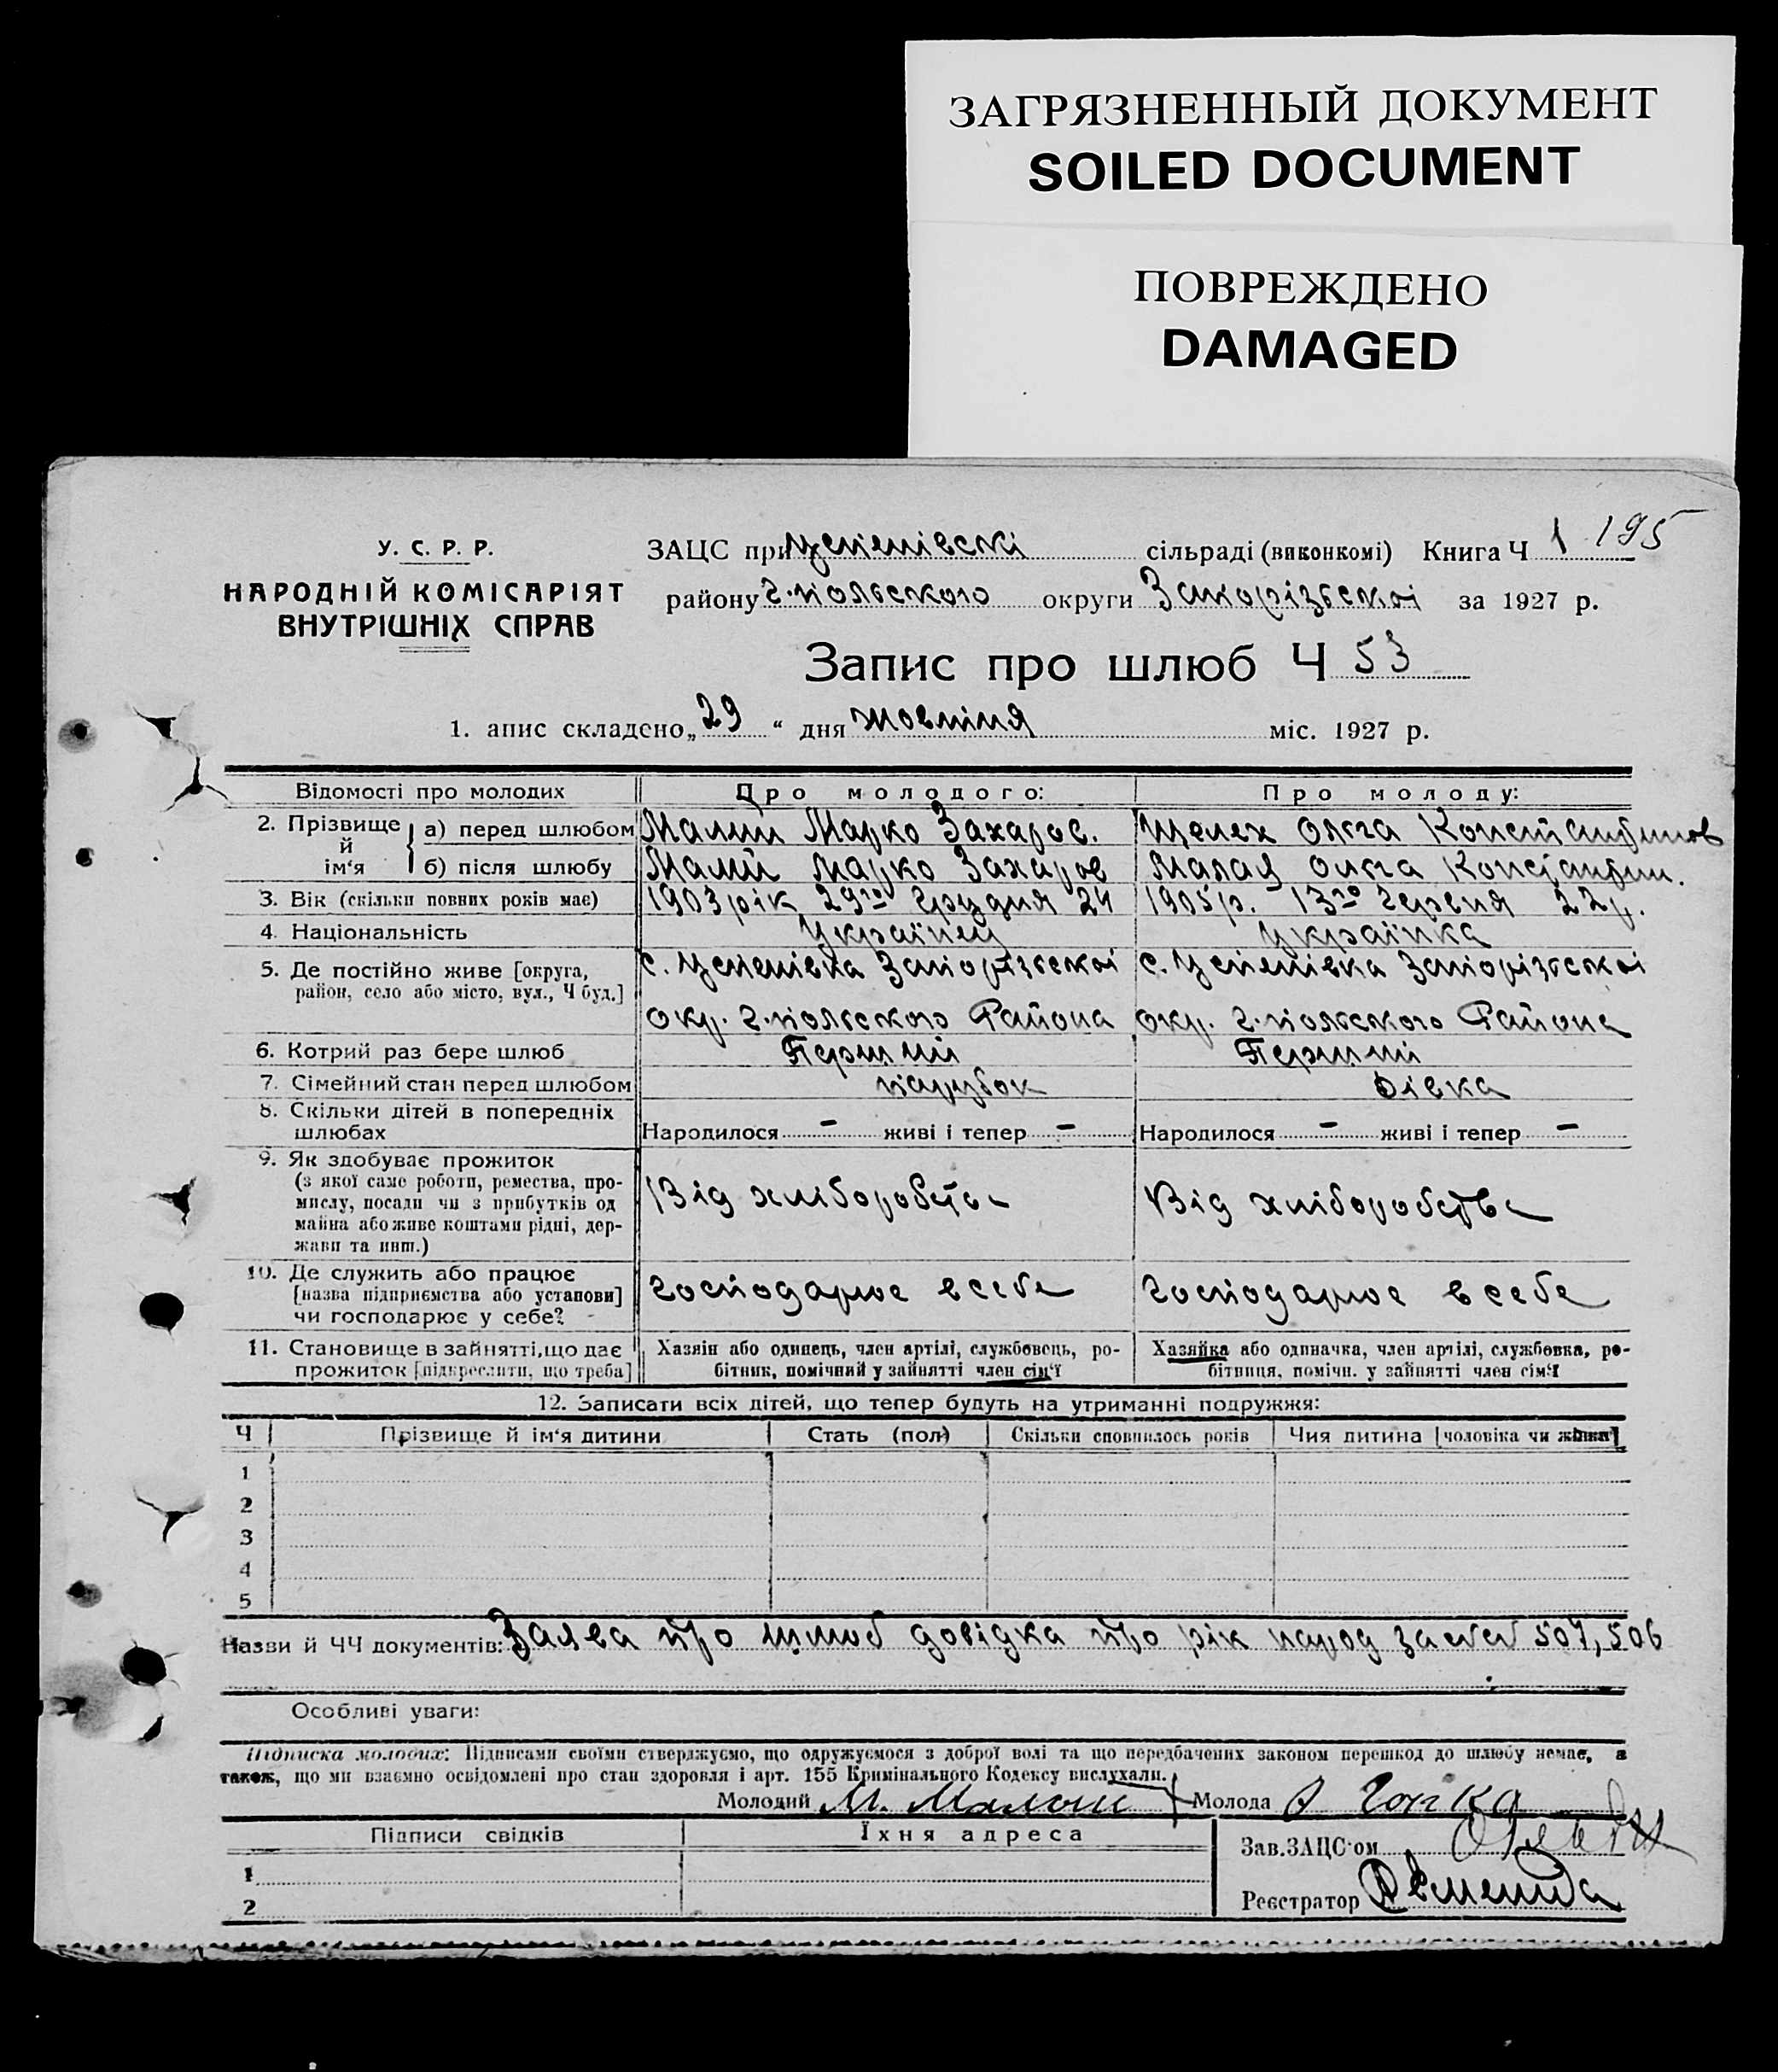 ЗАГРЯЗНЕННЫЙ ДОКУМЕНТ
SOILED DOCUMENT
ПОВРЕЖДЕНО
DAMAGED
195
У. С. Р. Р.
НАРОДНІЙ КОМІСАРІЯТ
ВНУТРІШНІХ СПРАВ
ЗАЦС при Успенівскі сільраді (виконкомі) Книга Ч 1
району Г.польского округи Запорізької за 1927 р.
Запис про шлюб Ч 53
1. апис складено „29“ дня жовтня міс. 1927 р.
Відомості про молодих Про молодого: Про молоду:
2. Прізвище й ім‘я
а) перед шлюбом Малий Марко Захаров. Ольга
б) після шлюбу Малий Марко Захаров Малая Ольга Константин.
3. Вік (скільки повних років має) 1903 рік 29го Грудня 24 1905 р. 13го Червня 22 р.
4. Національність Українец Українка
5. Де постійно живе [округа, район, село або місто, вул., Ч буд.]
с. Успенівка Запорізської с. Успенівка Запорізської
окр. Г.польского Района окр. Г.польского Района
6. Котрий раз бере шлюб Перший Перший
7. Сімейний стан перед шлюбом парубок дівка
8. Скільки дітей в попередніх шлюбах
Народилося - живі і тепер - Народилося - живі і тепер -
9. Як здобуває прожиток
(з якої саме роботи, ремества, про-
мислу, посади чи з прибутків од
майна або живе коштами рідні, дер-
жави та инш.)
Від хліборобства Від хліборобства
10. Де служить або працює
[назва підприємства або установи]
чи господарює у себе?
господарює в себе господарює в себе
11. Становище в занятті, що дає
прожиток [підкреслити, що треба]
Хазяін або одинець, член артілі, службовець, ро-
бітник, помічний у зайнятті член сім‘ї
Хазяйка або одиначка, член артілі, службовка, ро-
бітниця, помічн. у зайнятті член сім‘ї
12. Записати всіх дітей, що тепер будуть на утриманні подружжя:
Ч Прізвище й ім‘я дитини Стать (пол) Скільки сповнилось років Чия дитина [чоловіка чи жінки]
1
2
3
4
5
Назви й ЧЧ документів: Заява про шлюб довідка про рік народ 507, 506
Особливі уваги:
Підписка молодих: Підписами своїми стверджуємо, що одружуємося з доброї волі та що передбачених законом перешкод до шлюбу немає, а
також, що ми взаємно освідомлені про стан здоровля і арт. 155 Кримінального Кодексу вислухали.
Молодий М. Малой Молода
Підписи свідків Їхня адреса
1
2
Зав.ЗАЦС‘ом
Реєстратор